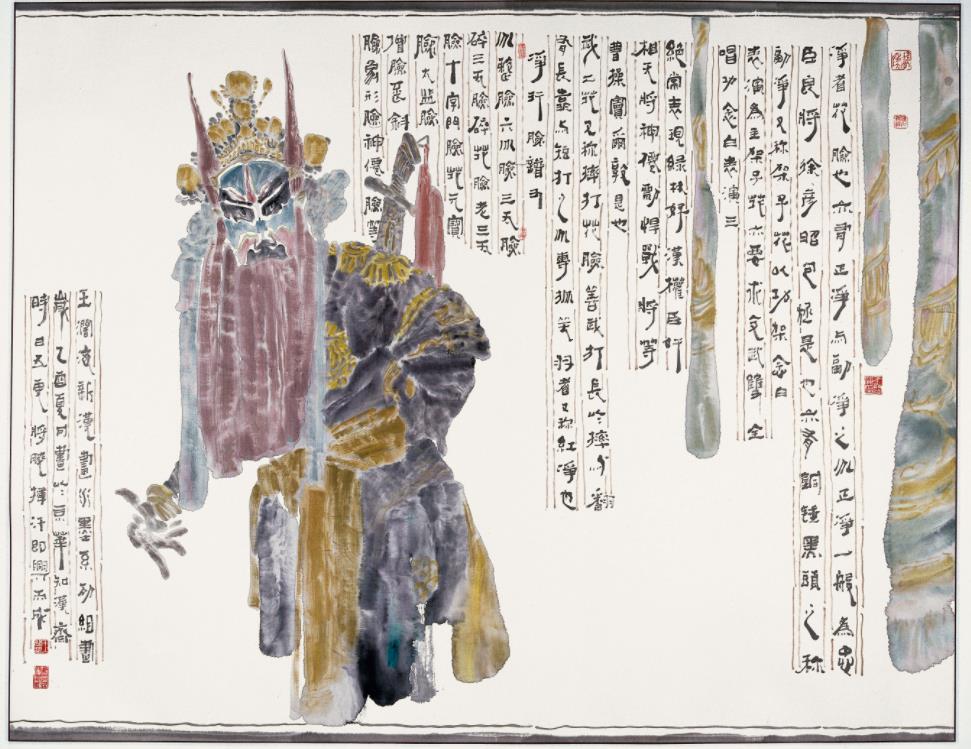 淨者花臉也亦有正淨与副淨之分正淨一般為忠
臣良將徐彥昭包極是也亦有銅錘黑頭之称
副淨又称架子花以功架念白
表演為主架子花亦要求文武雙全
唱功念白表演三
絕常表現綠林好漢權臣奸
相天將神僊悍戰將等
曹操竇爾敦是也
武二花又称摔打花臉善武打長於摔与翻
有長靠与短打之分專羽者又称紅淨也
淨行臉譜有
分整臉六分臉三瓦臉
碎三瓦臉碎花臉老三瓦
臉十字門臉花元寶
臉太監臉
僧臉歪斜
臉象形臉神僊臉等
王新漢畫水墨系列組畫
歲乙酉夏月畫於京華知漢齋
時日五更將曉揮汗即興而成